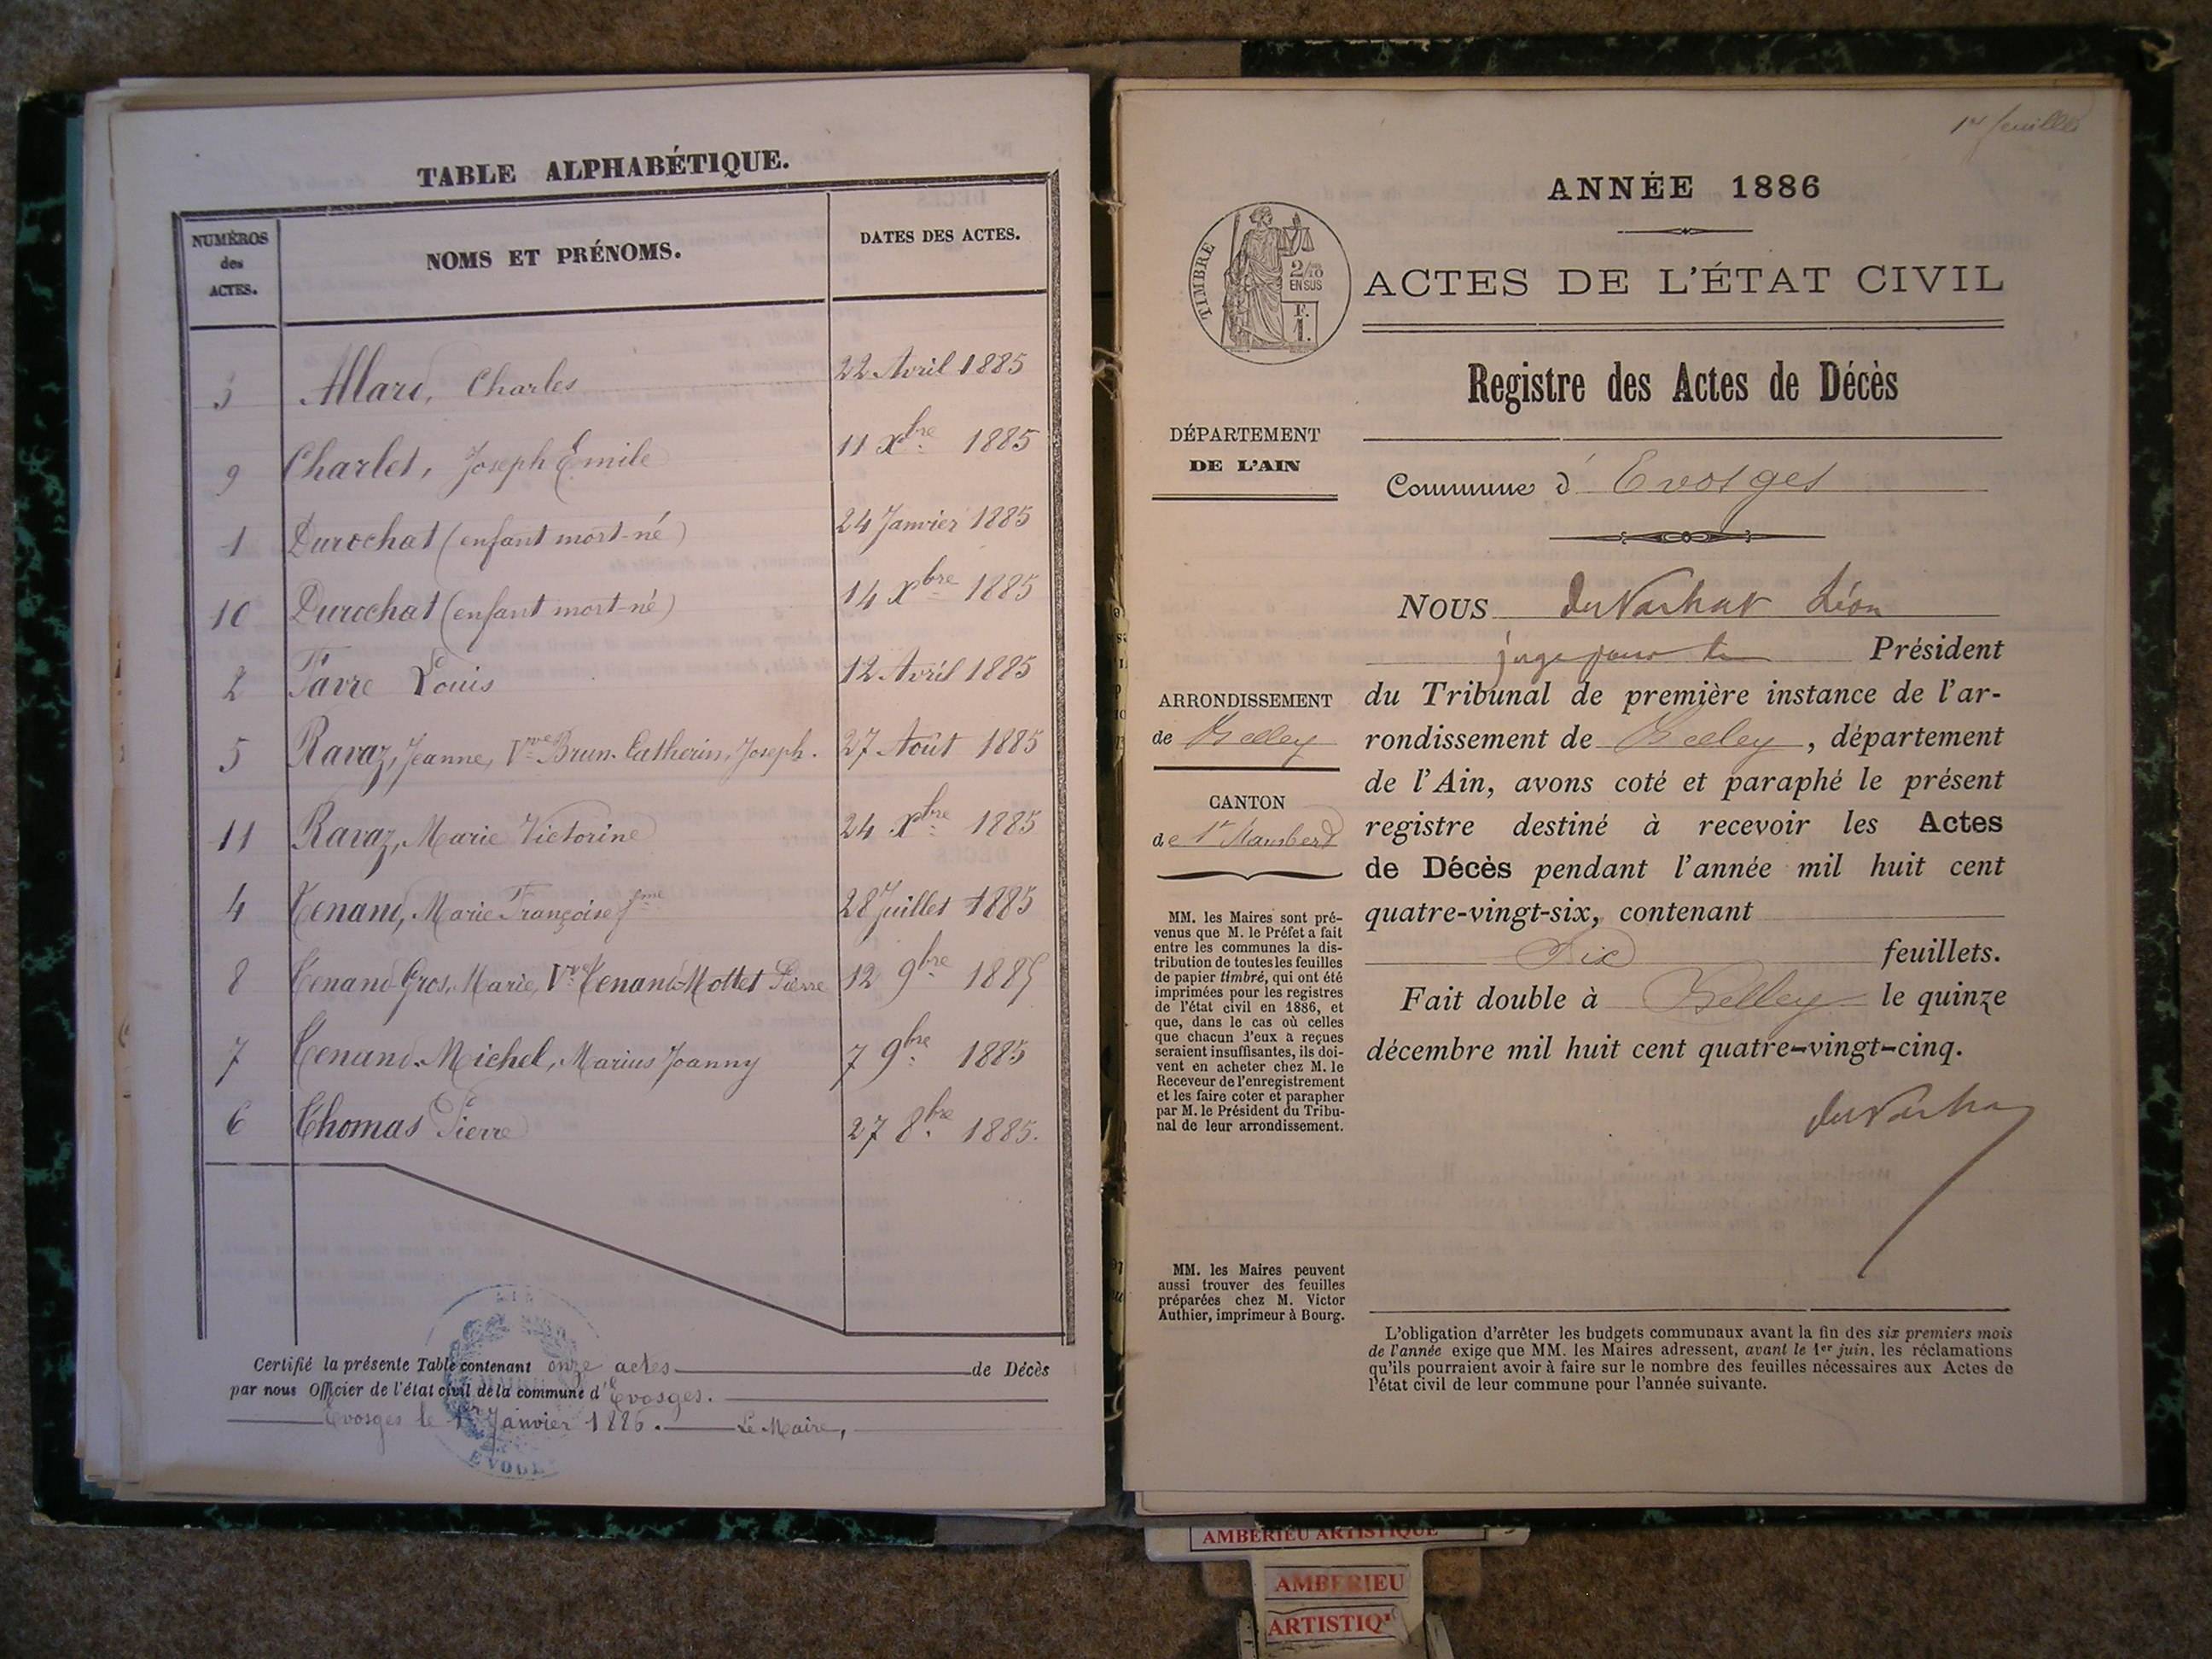 TABLE ALPHABÉTIQUE.
NUMÉROS des ACTES.
NOMS ET PRÉNOMS.
DATES DES ACTES.
3 Allard, Charles 22 Avril 1885
9 Charlet, Joseph Emile 11 Xbre 1885
1 Durochat (enfant mort-né) 24 Janvier 1885
10 Durochat (enfant mort-né) 14 Xbre 1885
2 Favre Louis 12 Avril 1885
5 Ravaz, Jeanne, Vve Brun-Catherin, Joseph. 27 Août 1885
11 Ravaz, Marie Victorine 24 Xbre 1885
4 Tenand, Marie Françoise fme 28 Juillet 1885
8 Tenand-Gros, Marie, Vve Tenand-Mottet Pierre 12 9bre 1885
7 Tenand-Michel, Marius Joanny 7 9bre 1885
6 Thomas Pierre 27 8bre 1885.
Certifié la présente Table contenant onze actes de Décès
par nous Officier de l'état civil de la commune d'Evosges.
Evosges le 1er Janvier 1886. Le Maire,
1er feuillet
ANNÉE 1886
TIMBRE
2/10 EN SUS
F. 1.
ACTES DE L'ÉTAT CIVIL
Registre des Actes de Décès
DÉPARTEMENT
DE L'AIN
Commune d'Evosges
NOUS Léon
juge pour le Président
du Tribunal de première instance de l'ar-
rondissement de Belley, département
de l'Ain, avons coté et paraphé le présent
registre destiné à recevoir les Actes
de Décès pendant l'année mil huit cent
quatre-vingt-six, contenant
feuillets.
Fait double à Belley le quinze
décembre mil huit cent quatre-vingt-cinq.
ARRONDISSEMENT
de Belley
CANTON
de St Rambert
MM. les Maires sont pré-
venus que M. le Préfet a fait
entre les communes la dis-
tribution de toutes les feuilles
de papier timbré, qui ont été
imprimées pour les registres
de l'état civil en 1886, et
que, dans le cas où celles
que chacun d'eux a reçues
seraient insuffisantes, ils doi-
vent en acheter chez M. le
Receveur de l'enregistrement
et les faire coter et parapher
par M. le Président du Tribu-
nal de leur arrondissement.
MM. les Maires peuvent
aussi trouver des feuilles
préparées chez M. Victor
Authier, imprimeur à Bourg.
L'obligation d'arrêter les budgets communaux avant la fin des six premiers mois
de l'année exige que MM. les Maires adressent, avant le 1er juin, les réclamations
qu'ils pourraient avoir à faire sur le nombre des feuilles nécessaires aux Actes de
l'état civil de leur commune pour l'année suivante.
AMBERIEU ARTISTIQUE
AMBERIEU
ARTISTIQ